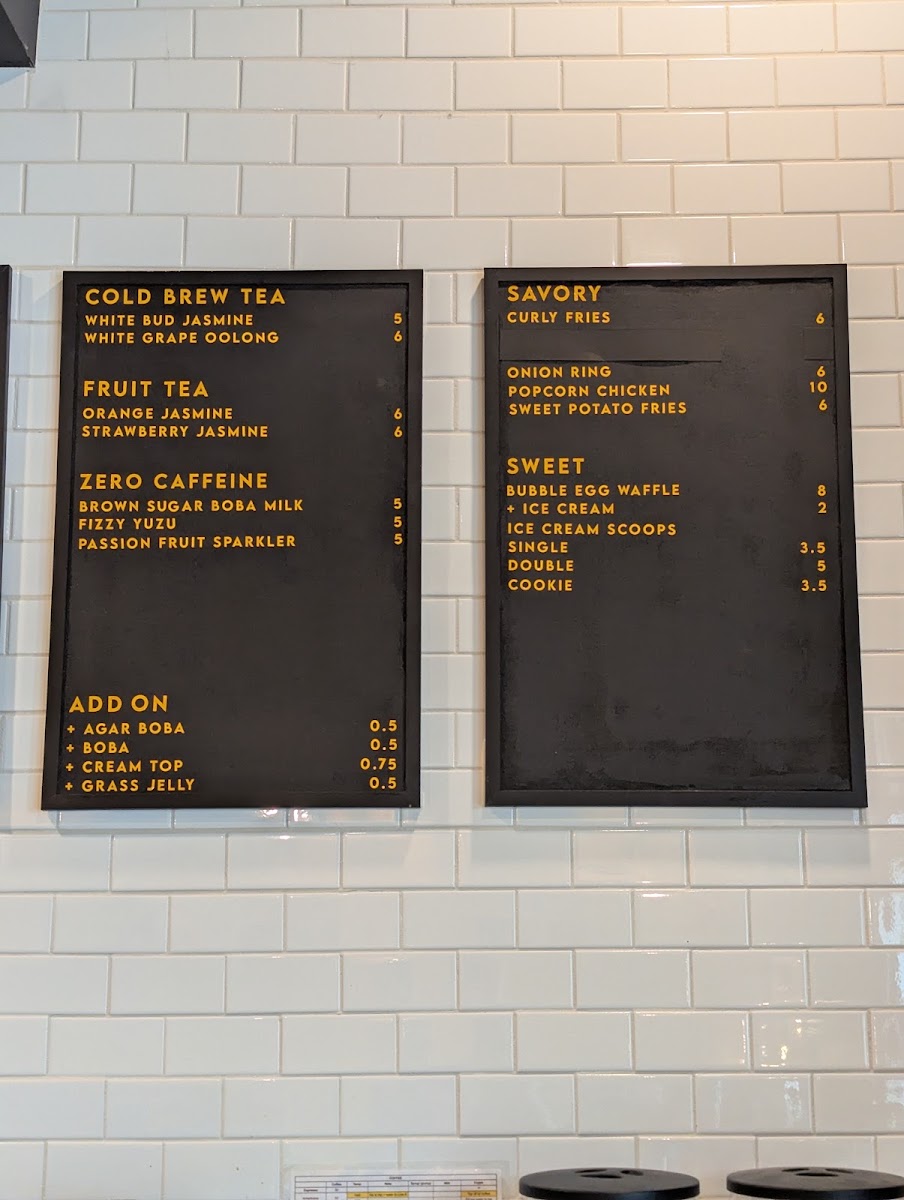 COLD BREW TEA
WHITE BUD JASMINE 5
WHITE GRAPE OOLONG 6
FRUIT TEA
ORANGE JASMINE 6
STRAWBERRY JASMINE 6
ZERO CAFFEINE
BROWN SUGAR BOBA MILK 5
FIZZY YUZU 5
PASSION FRUIT SPARKLER 5
ADD ON
+ AGAR BOBA 0.5
+ BOBA 0.5
+ CREAM TOP 0.75
+ GRASS JELLY 0.5
SAVORY
CURLY FRIES 6
ONION RING 6
POPCORN CHICKEN 10
SWEET POTATO FRIES 6
SWEET
BUBBLE EGG WAFFLE 8
+ ICE CREAM 2
ICE CREAM SCOOPS
SINGLE 3.5
DOUBLE 5
COOKIE 3.5